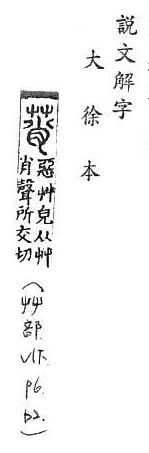 說文解字
大徐本
莦 惡艸皃从艸
肖聲所交切
(艸部. V1下. p6. b2.)